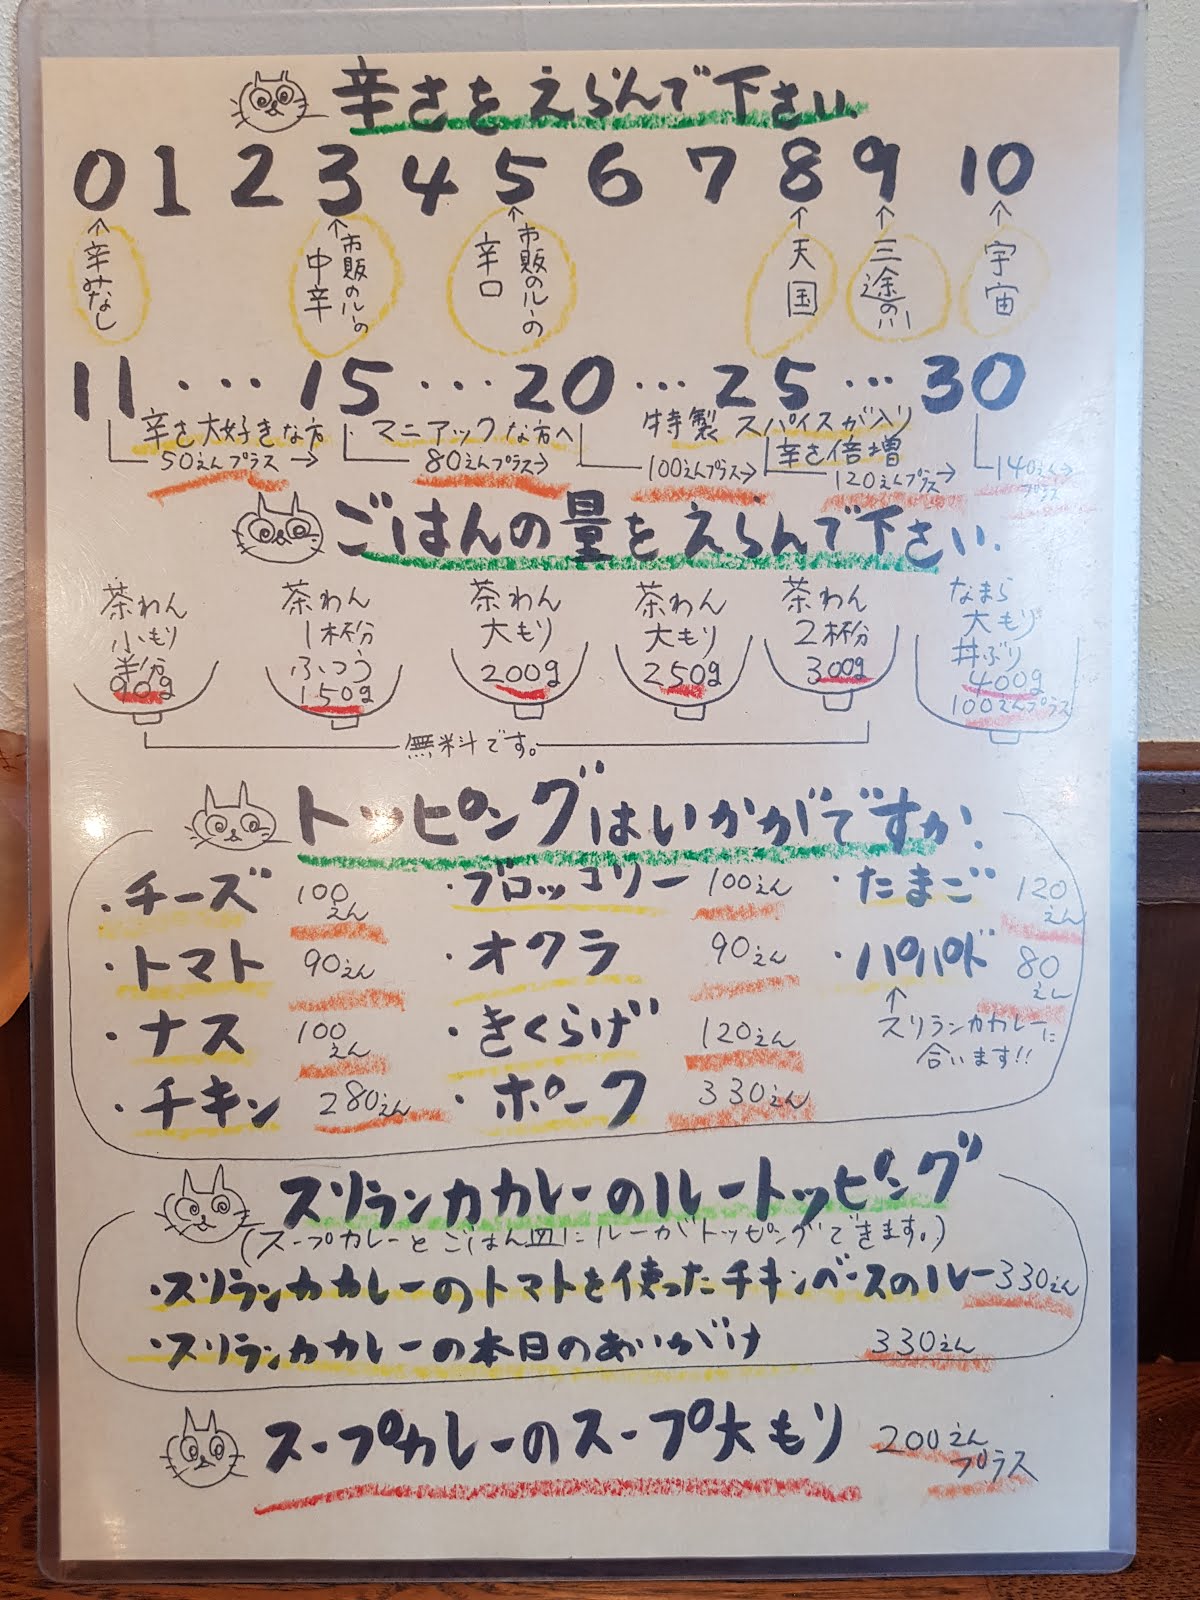 辛さをえらんで下さい.
0 1 2 3 4 5 6 7 8 9 10
↑ 辛みなし
↑ 市販のルーの 中辛
↑ 市販のルーの 辛口
↑ 天国
↑ 三途の川
↑ 宇宙
11 ・・・ 15 ・・・ 20 ・・・ 25 ・・・ 30
辛さ大好きな方 50えんプラス→
マニアックな方へ 80えんプラス→
特製スパイスが入り 100えんプラス→
辛さ倍増 120えんプラス→
140えん→ プラス
ごはんの量をえらんで下さい.
茶わん 小もり 半分 90g
茶わん 1杯分 ふつう 150g
茶わん 大もり 200g
茶わん 大もり 250g
茶わん 2杯分 300g
なまら 大もり 丼ぶり 400g 100えんプラス
無料です。
トッピングはいかがですか.
・チーズ 100えん ・ブロッコリー 100えん ・たまご 120えん
・トマト 90えん ・オクラ 90えん ・パパド 80えん
・ナス 100えん ・きくらげ 120えん ↑スリランカカレーに合います!!
・チキン 280えん ・ポーク 330えん
スリランカカレーのルートッピング
(スープカレーとごはん皿にルーがトッピングできます。)
・スリランカカレーのトマトを使ったチキンベースのルー 330えん
・スリランカカレーの本日のあいがけ 330えん
スープカレーのスープ大もり 200えんプラス